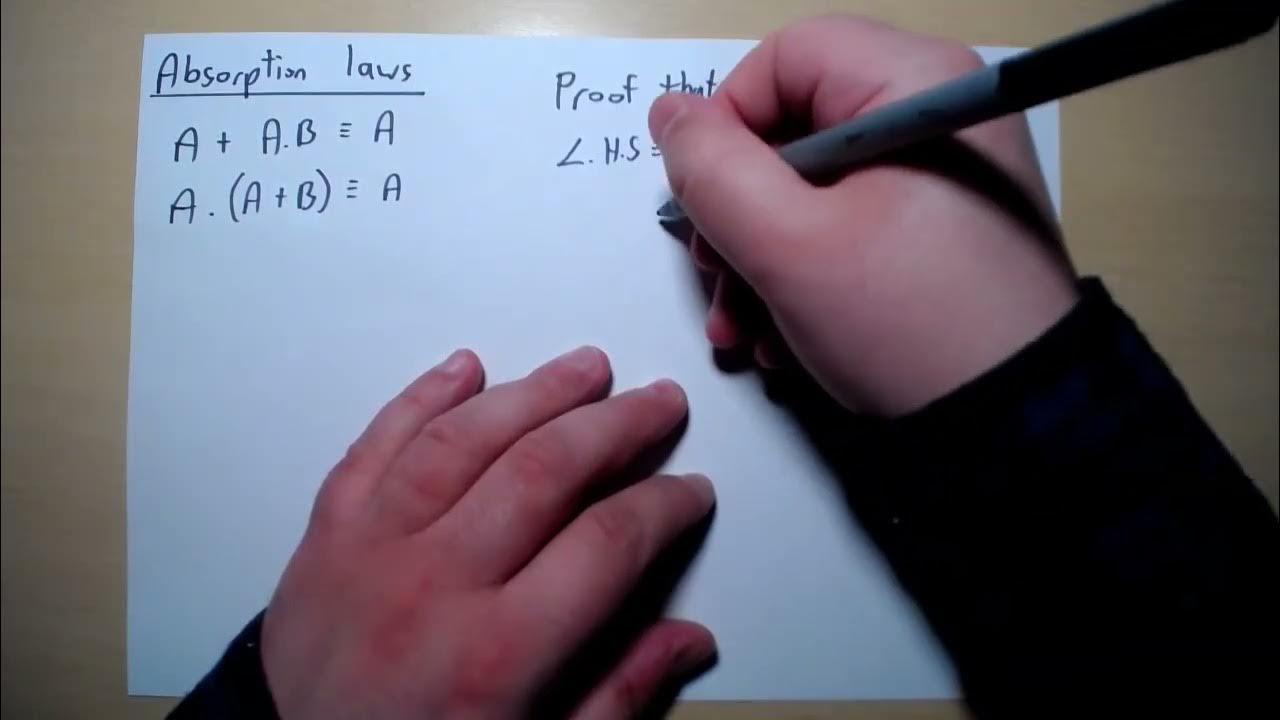 Absorption laws
A + A.B ≡ A
A . (A + B) ≡ A
Proof that
L.H.S =